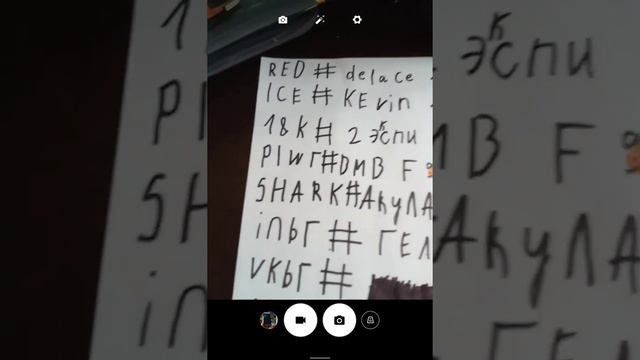 RED # delace
ICE # KEvin
18K # 2 эспик
PIWГ#DMB F
SHARK#АКУЛА
iПЬГ # ГЕЛ
VКЬГ #